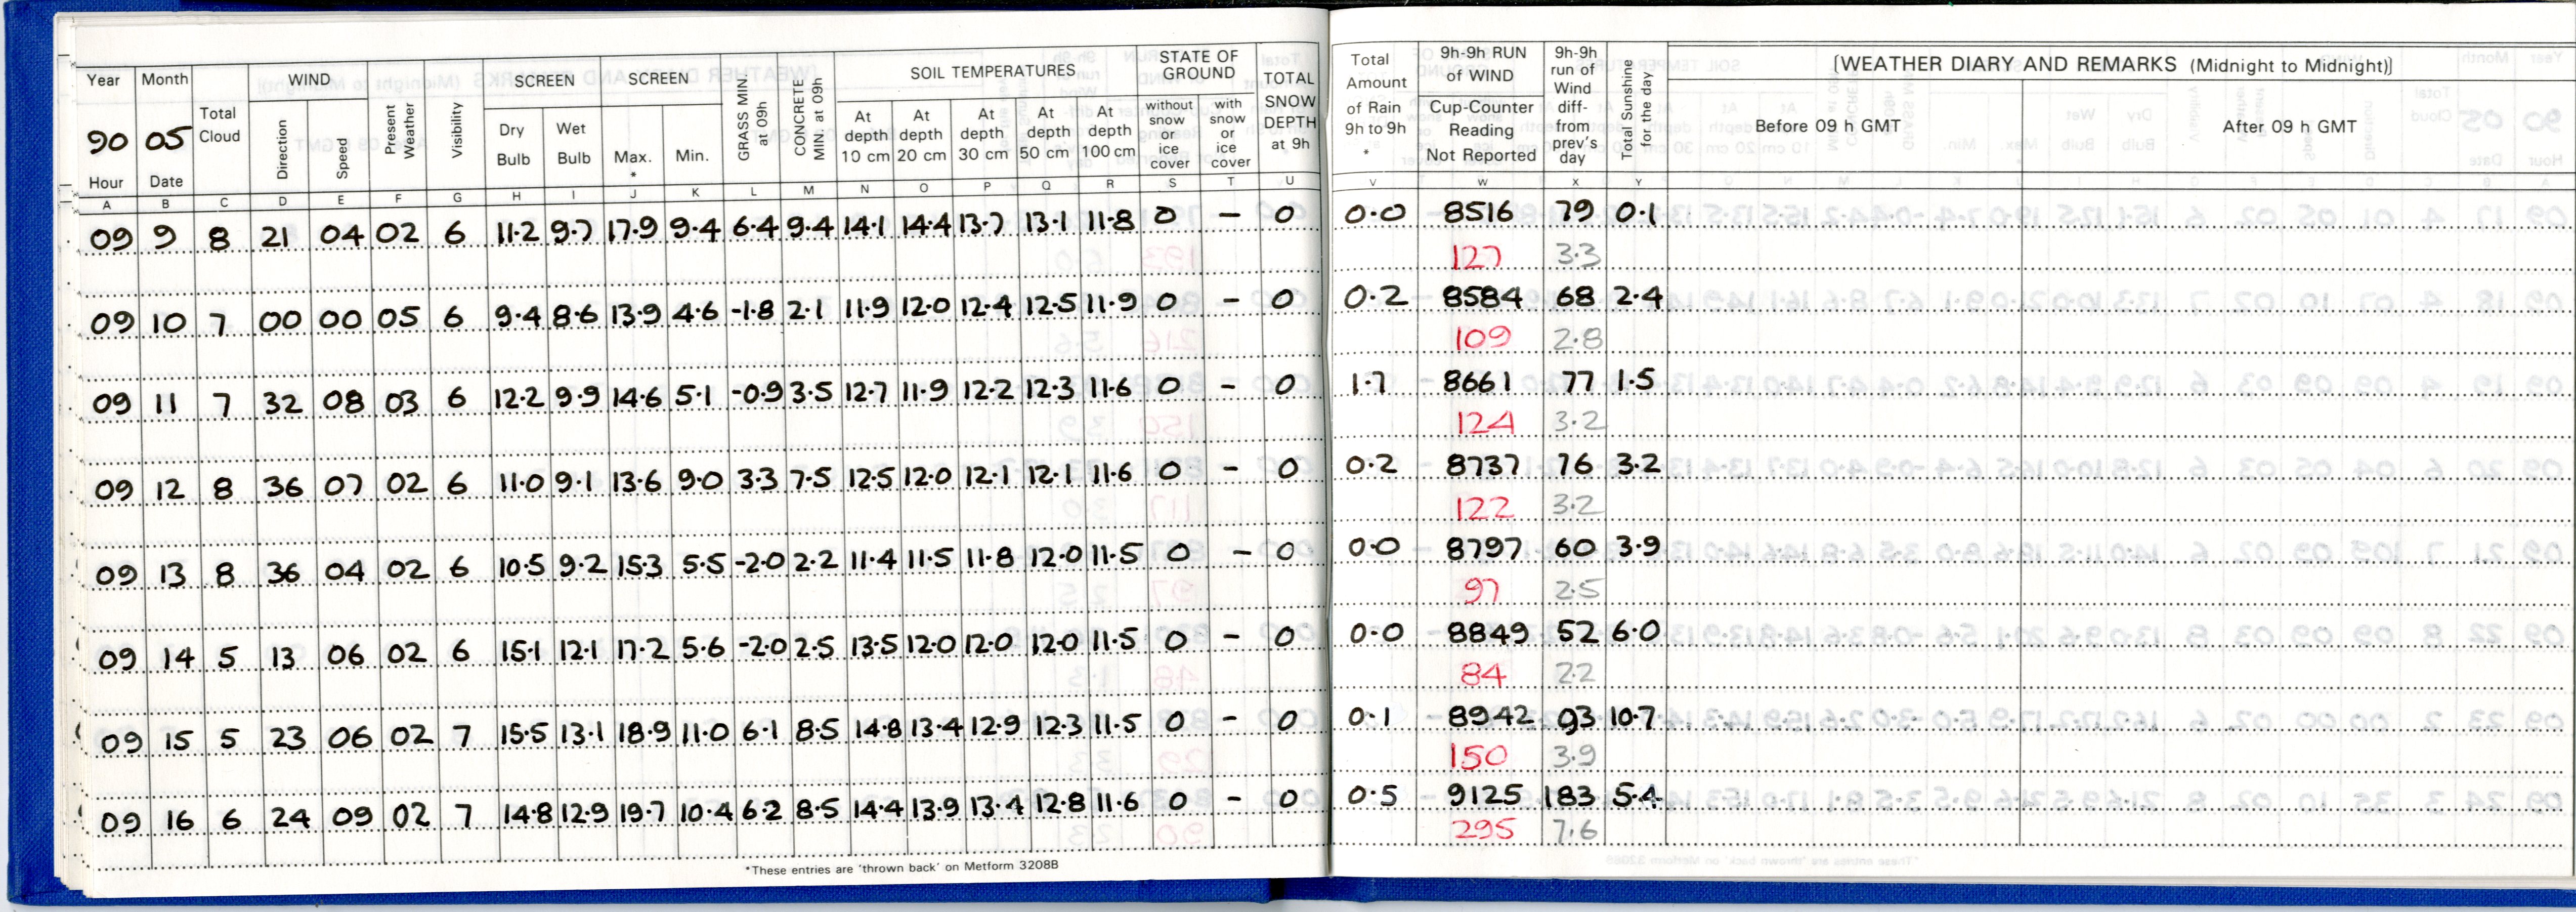 Year Month Total Cloud WIND Present Weather Visibility SCREEN SCREEN GRASS MIN. at 09h CONCRETE MIN. at 09h SOIL TEMPERATURES STATE OF GROUND TOTAL SNOW DEPTH at 9h Total Amount of Rain 9h to 9h * 9h-9h RUN of WIND 9h-9h run of Wind diff- from prev's day Total Sunshine for the day (WEATHER DIARY AND REMARKS (Midnight to Midnight))
90 05 Direction Speed Dry Bulb Wet Bulb Max. * Min. At depth 10 cm At depth 20 cm At depth 30 cm At depth 50 cm At depth 100 cm without snow or ice cover with snow or ice cover Cup-Counter Reading Not Reported Before 09 h GMT After 09 h GMT
Hour Date
A B C D E F G H I J K L M N O P Q R S T U V W X Y
09 9 8 21 04 02 6 11.2 9.7 17.9 9.4 6.4 9.4 14.1 14.4 13.7 13.1 11.8 0 – 0 0.0 8516 79 0.1
127 3.3
09 10 7 00 00 05 6 9.4 8.6 13.9 4.6 -1.8 2.1 11.9 12.0 12.4 12.5 11.9 0 – 0 0.2 8584 68 2.4
109 2.8
09 11 7 32 08 03 6 12.2 9.9 14.6 5.1 -0.9 3.5 12.7 11.9 12.2 12.3 11.6 0 – 0 1.7 8661 77 1.5
124 3.2
09 12 8 36 07 02 6 11.0 9.1 13.6 9.0 3.3 7.5 12.5 12.0 12.1 12.1 11.6 0 – 0 0.2 8737 76 3.2
122 3.2
09 13 8 36 04 02 6 10.5 9.2 15.3 5.5 -2.0 2.2 11.4 11.5 11.8 12.0 11.5 0 – 0 0.0 8797 60 3.9
97 2.5
09 14 5 13 06 02 6 15.1 12.1 17.2 5.6 -2.0 2.5 13.5 12.0 12.0 12.0 11.5 0 – 0 0.0 8849 52 6.0
84 2.2
09 15 5 23 06 02 7 15.5 13.1 18.9 11.0 6.1 8.5 14.8 13.4 12.9 12.3 11.5 0 – 0 0.1 8942 93 10.7
150 3.9
09 16 6 24 09 02 7 14.8 12.9 19.7 10.4 6.2 8.5 14.4 13.9 13.4 12.8 11.6 0 – 0 0.5 9125 183 5.4
295 7.6
*These entries are 'thrown back' on Metform 3208B